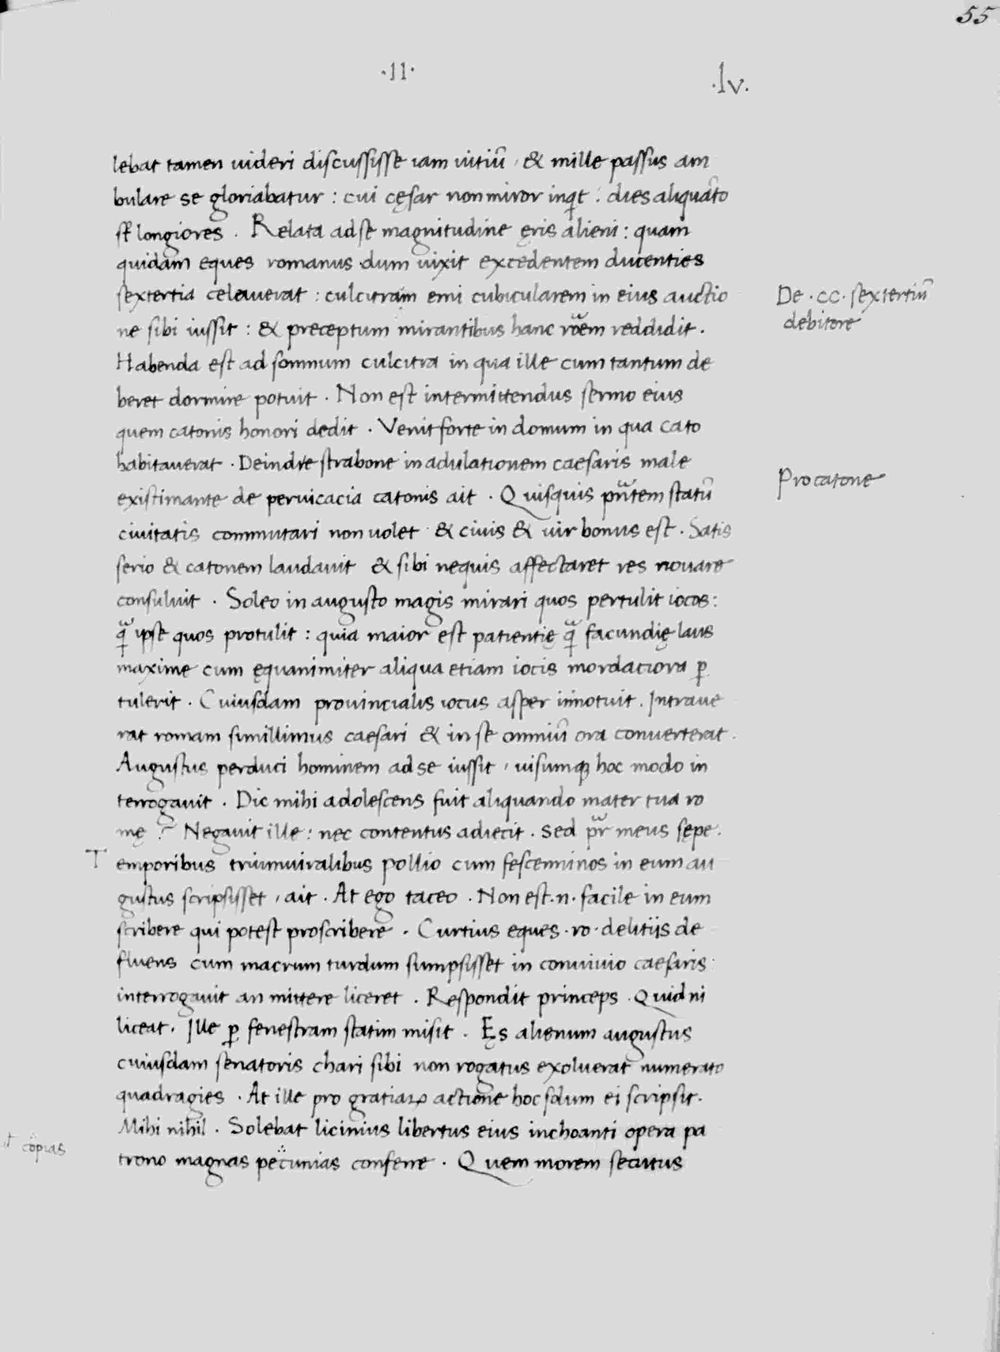 55
·II·
·lv.
lebat tamen uideri discussisse iam uitiū, & mille passus am
bulare se gloriabatur : cui cęsar non miror inqͥt : dies aliquāto
sͭ longiores . Relata ad se magnitudine ęris alieni : quam
quidam eques romanus dum uixit excedentem ducenties
sextertia celauerat : culcitram emi cubicularem in eius auctio
De ·CC· sextertiū
ne sibi iussit : & preceptum mirantibus hanc rōem reddidit .
debitore
Habenda est ad somnum culcitra in qua ille cum tantum de
beret dormire potuit . Non est intermittendus sermo eius
quem catonis honori dedit . Venit forte in domum in qua cato
habitauerat . Deindre strabone in adulationem caesaris male
existimante de peruicacia catonis ait . Quisquis pn̄tem statū
Pro catone
ciuitatis commutari non uolet & ciuis & uir bonus est . Satis
serio & catonem laudauit & sibi nequis affectaret res nouare
consuluit . Soleo in augusto magis mirari quos pertulit iocos :
qᷓ ipse quos protulit : quia maior est patientię qᷓ facundię laus
maxime cum ęquanimiter aliqua etiam iocis mordaciora ꝑ
tulerit . Cuiusdam prouincialis iocus asper innotuit . Intraue
rat romam simillimus caesari & in se omniū ora conuerterat .
Augustus perduci hominem ad se iussit, uisumqꝫ hoc modo in
terrogauit . Dic mihi adolescens fuit aliquando mater tua ro
mę ? Negauit ille : nec contentus adiecit . Sed pr̄ meus sępe .
T emporibus triumuiralibus pollio cum fescenninos in eum au
gustus scripsisset, ait . At ego taceo . Non est ·n· facile in eum
scribere qui potest proscribere . Curtius eques ·ro· delitiis de
fluens cum macrum turdum sumpsisset in conuiuio caesaris
interrogauit an mittere liceret . Respondit princeps . Quid ni
liceat . Ille ꝑ fenestram statim misit . Ęs alienum augustus
cuiusdam senatoris chari sibi non rogatus exoluerat numerato
quadragies . At ille pro gratiaꝝ actione hoc solum ei scripsit .
Mihi nihil . Solebat licinius libertus eius inchoanti opera pa
copias
trono magnas pecunias conferre . Quem morem secutus